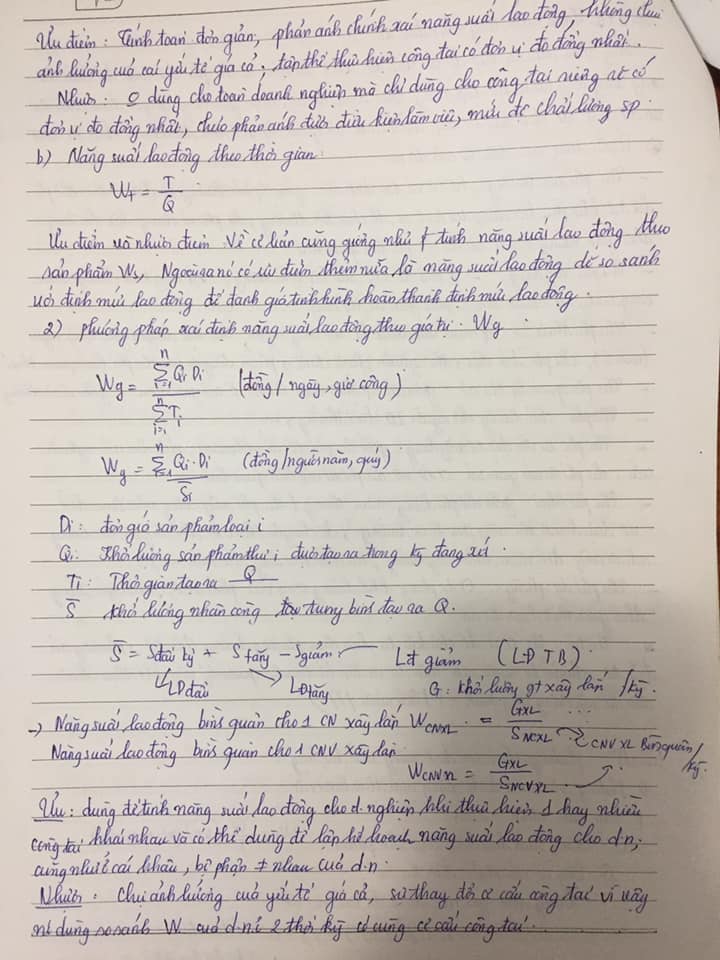 Ưu điểm : Tính toán đơn giản, phản ánh chính xác năng suất lao động, không chịu
ảnh hưởng của các yếu tố giá cả, tập thể thực hiện công tác có đơn vị đo đồng nhất.
Nhược : 0 dùng cho toàn doanh nghiệp mà chỉ dùng cho công tác riêng rẽ có
đơn vị đo đồng nhất, chưa phản ánh được điều kiện làm việc, mức độ chất lượng sp.
b) Năng suất lao động theo thời gian
Wt = T / Q
Ưu điểm và nhược điểm về cơ bản cũng giống như f tính năng suất lao động theo
sản phẩm Ws, Ngoài ra nó có ưu điểm thêm nữa là năng suất lao động để so sánh
với định mức lao động để đánh giá tình hình hoàn thành định mức lao động.
2) phương pháp xác định năng suất lao động theo giá trị. Wg
Wg = n Σ i=1 Qi Di / n Σ i=1 Ti (đồng / ngày, giờ công)
Wg = n Σ i=1 Qi . Di / S̄i (đồng /người năm, quý)
Di : đơn giá sản phẩm loại i
Qi : Khối lượng sản phẩm thứ i được tạo ra trong kỳ đang xét.
Ti : Thời gian tạo ra Q
S̄ khối lượng nhân công trung bình tạo ra Q.
S̄ = Sđầu kỳ + Stăng - Sgiảm. Lđ giảm (LĐ TB)
LĐ đầu LĐ tăng G : khối lượng gt xây lắp /kỳ.
-> Năng suất lao động bình quân cho 1 CN xây lắp WCNXL = GXL / SNCXL ...
CNVXL Bình quân /kỳ.
Năng suất lao động bình quân cho 1 CNV xây lắp
WCNVXL = GXL / SNCVXL
Ưu : dùng để tính năng suất lao động cho d.nghiệp khi thực hiện 1 hay nhiều
công tác khác nhau và có thể dùng để lập kế hoạch năng suất lao động cho d.n,
cũng như ở các khâu, bộ phận ≠ nhau của d.n.
Nhược : Chịu ảnh hưởng của yếu tố giá cả, sự thay đổi cơ cấu công tác vì vậy
nó dùng so sánh W của d.n ở 2 thời kỳ có cùng cơ cấu công tác.